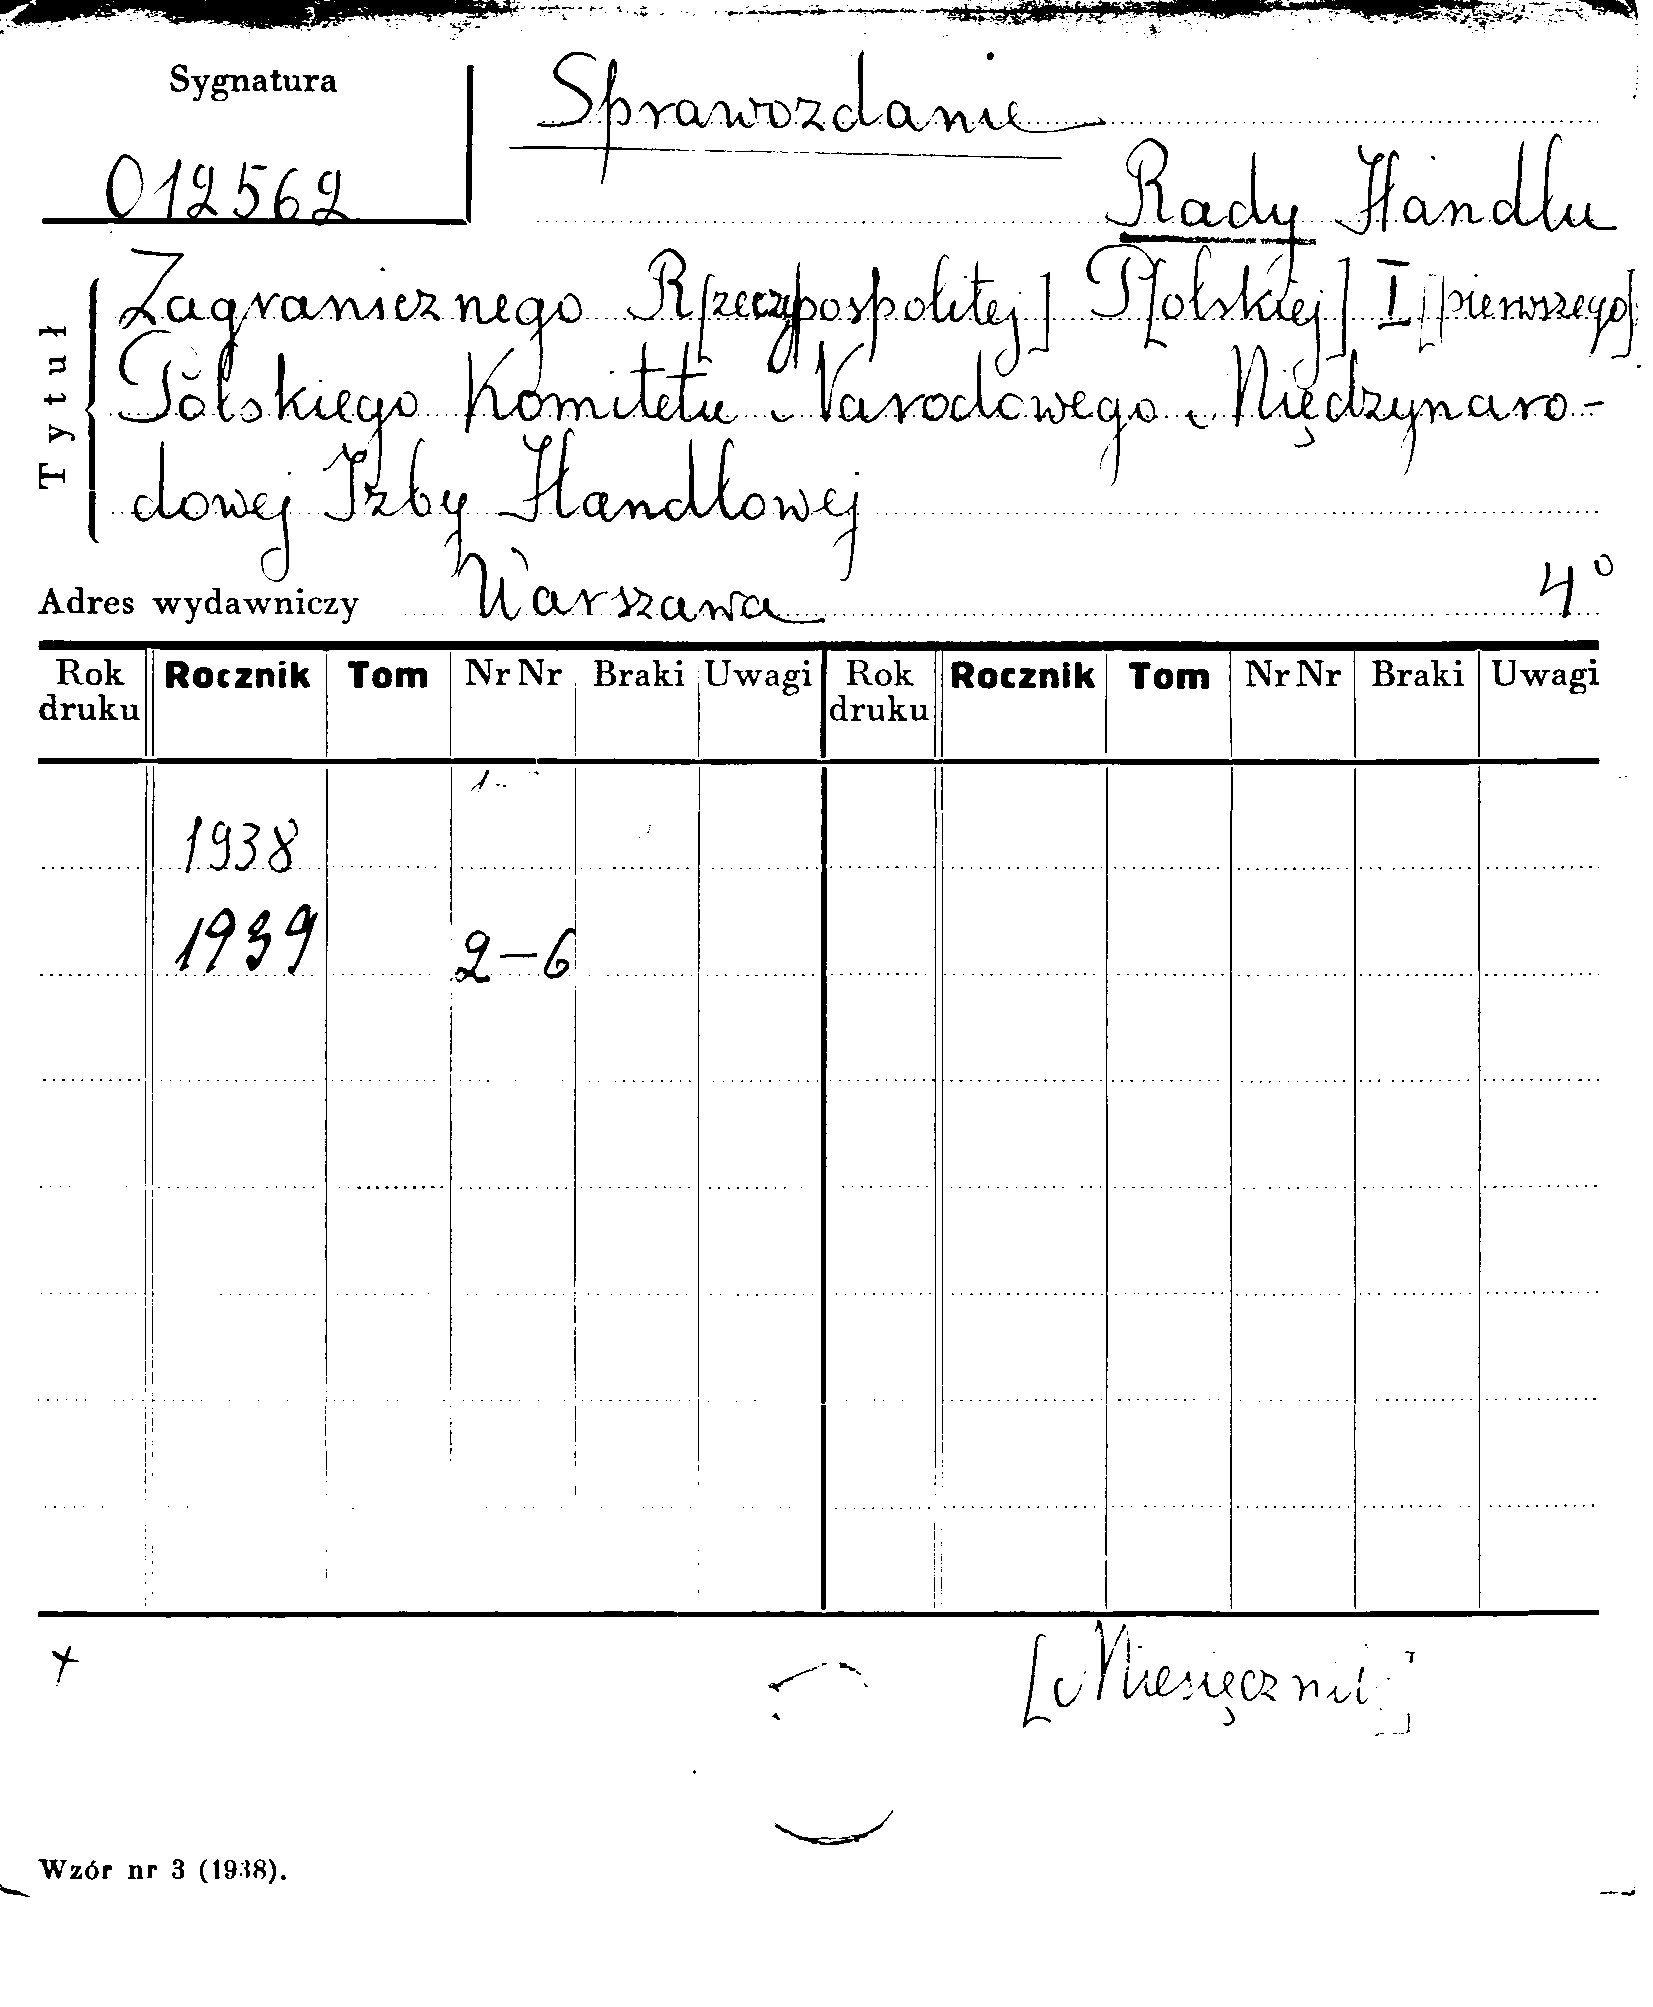 Sygnatura
Sprawozdanie
012562
Rady Handlu
Tytuł
Zagranicznego R[zeczypospolitej] P[olskiej] I [pierwszego]
Polskiego Komitetu Narodowego Międzynaro-
dowej Izby Handlowej
Adres wydawniczy Warszawa 4°
Rok druku Rocznik Tom Nr Nr Braki Uwagi Rok druku Rocznik Tom Nr Nr Braki Uwagi
1938
1939 2-6
[Miesięcznik]
Wzór nr 3 (1938).